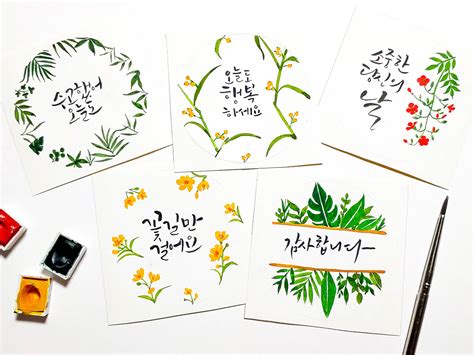 수고했어
오늘도
오늘도
행복
하세요
소중한
당신의
날
꽃길만
걸어요
감사합니다